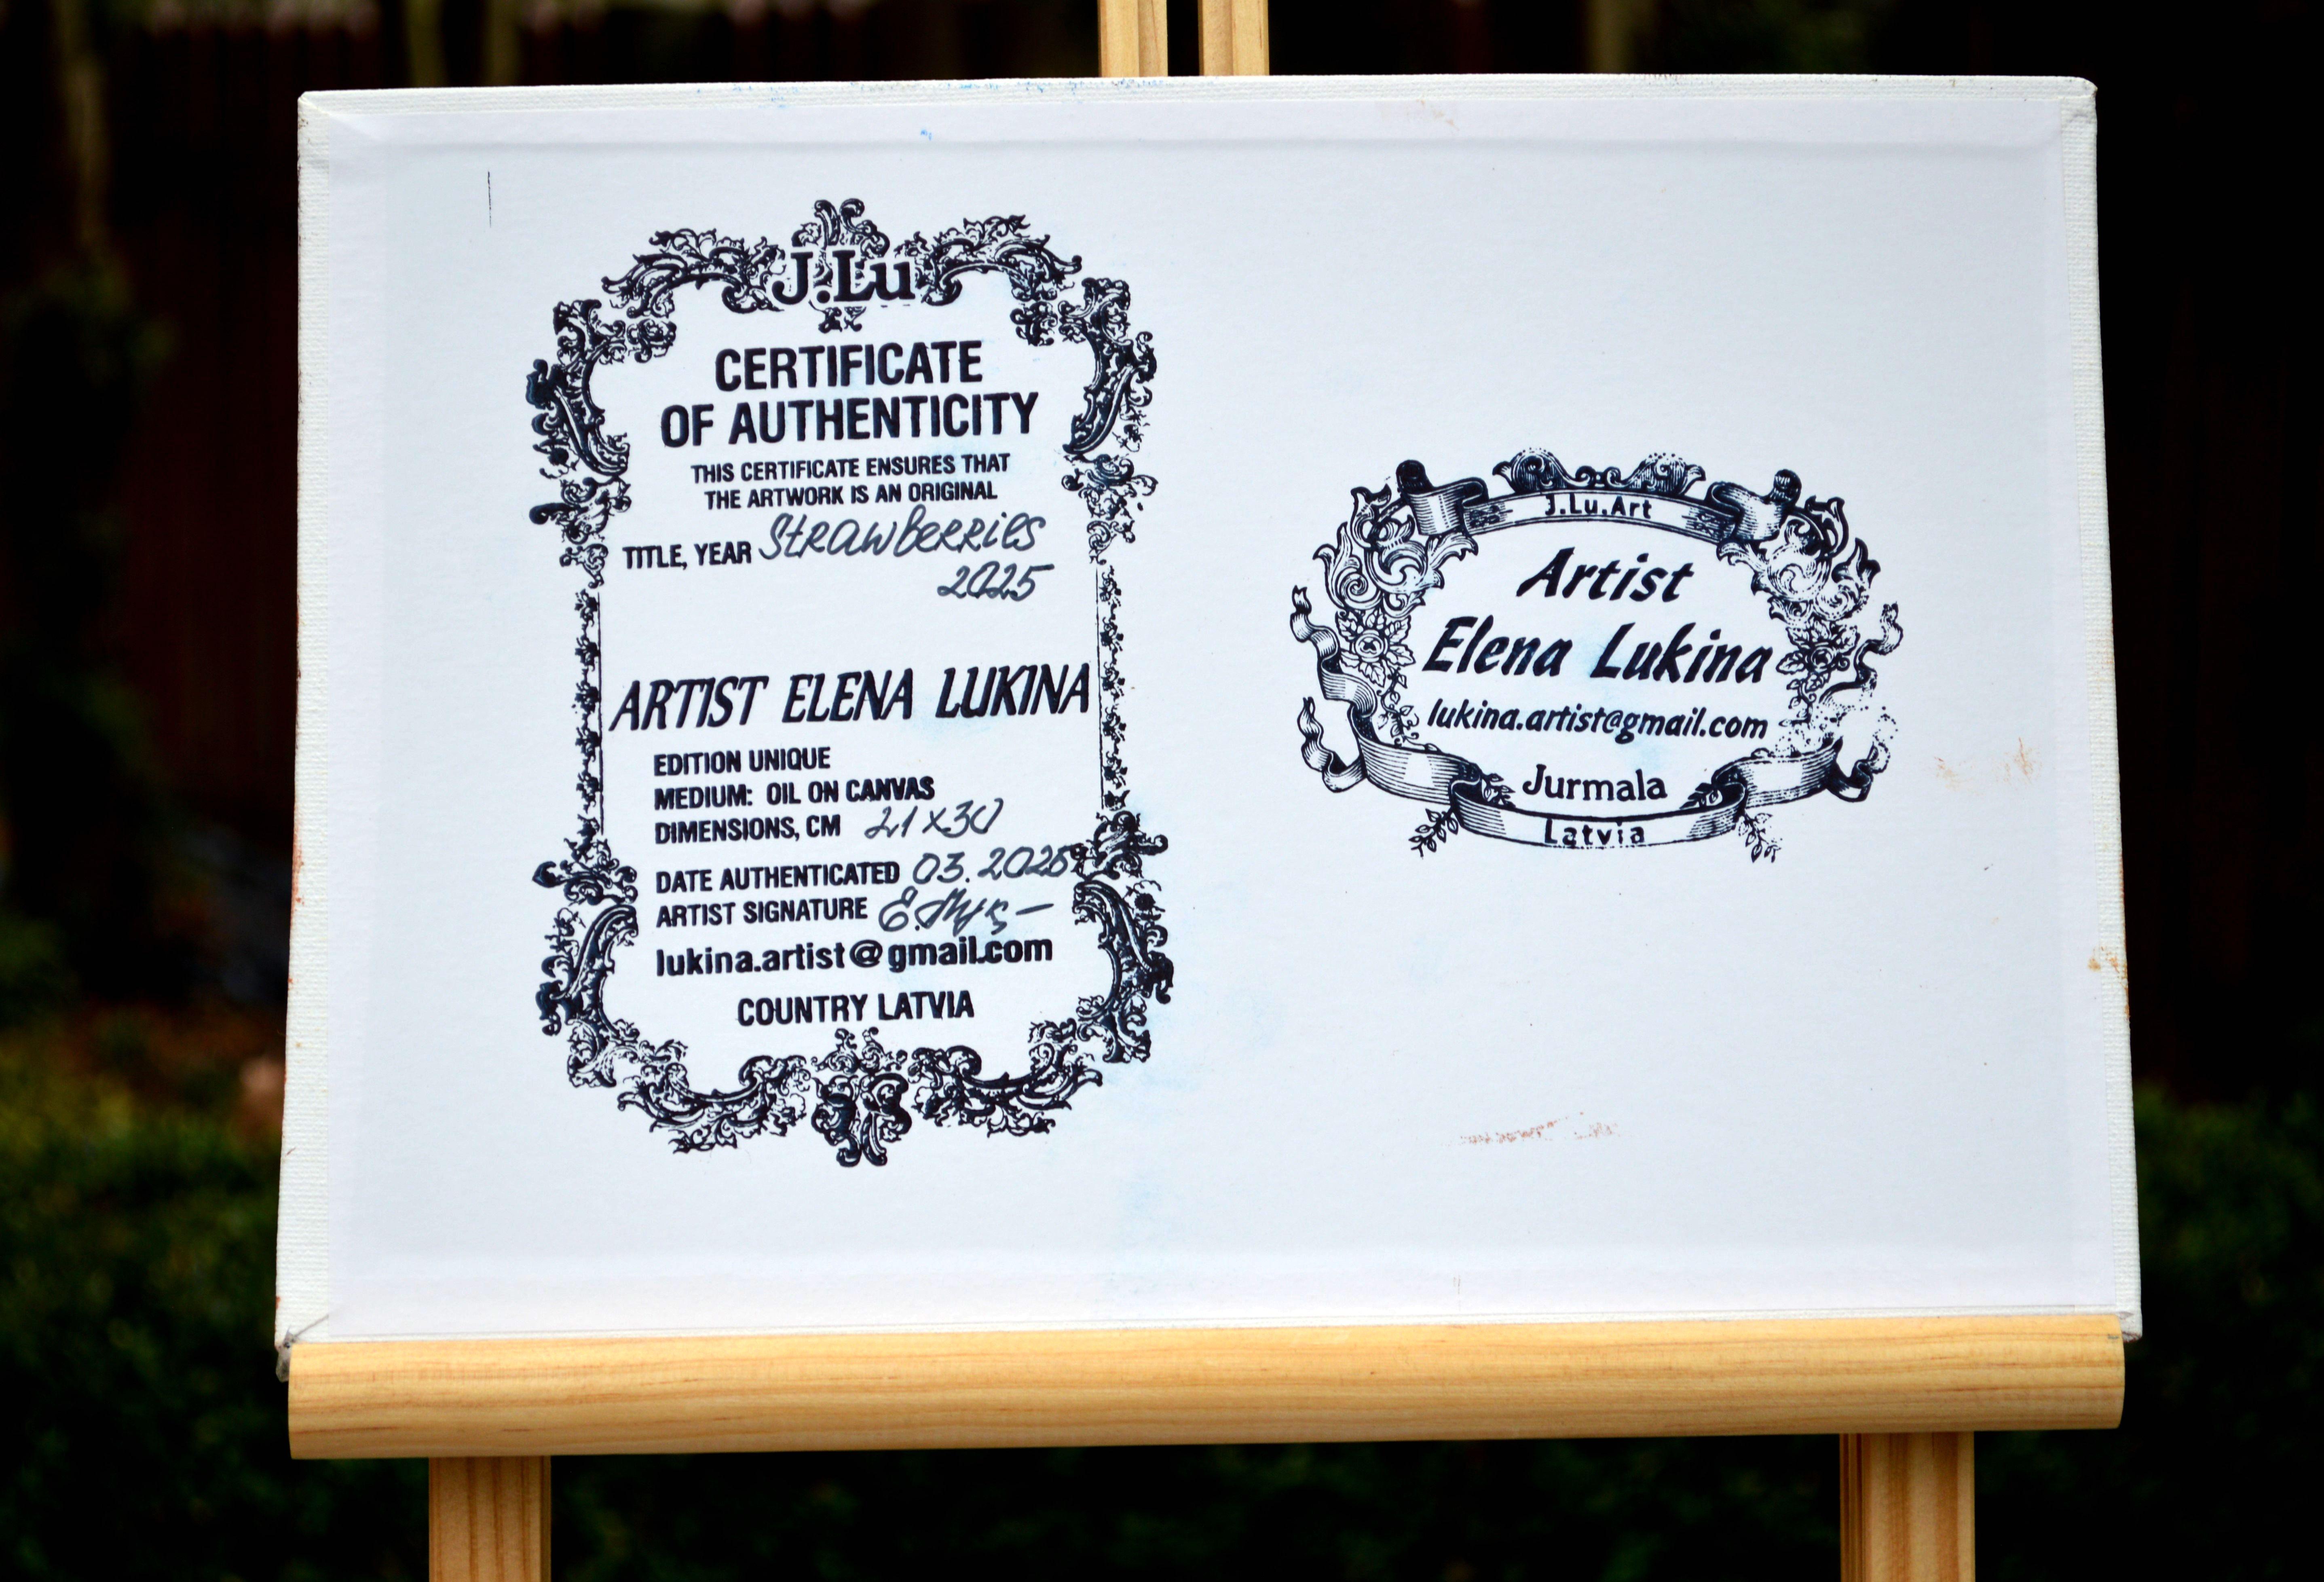 J.Lu
CERTIFICATE
OF AUTHENTICITY
THIS CERTIFICATE ENSURES THAT
THE ARTWORK IS AN ORIGINAL
TITLE, YEAR Strawberries
2025
ARTIST ELENA LUKINA
EDITION UNIQUE
MEDIUM: OIL ON CANVAS
DIMENSIONS, CM 21x30
DATE AUTHENTICATED 03.2025
ARTIST SIGNATURE
lukina.artist@gmail.com
COUNTRY LATVIA
J.Lu.Art
Artist
Elena Lukina
lukina.artist@gmail.com
Jurmala
Latvia